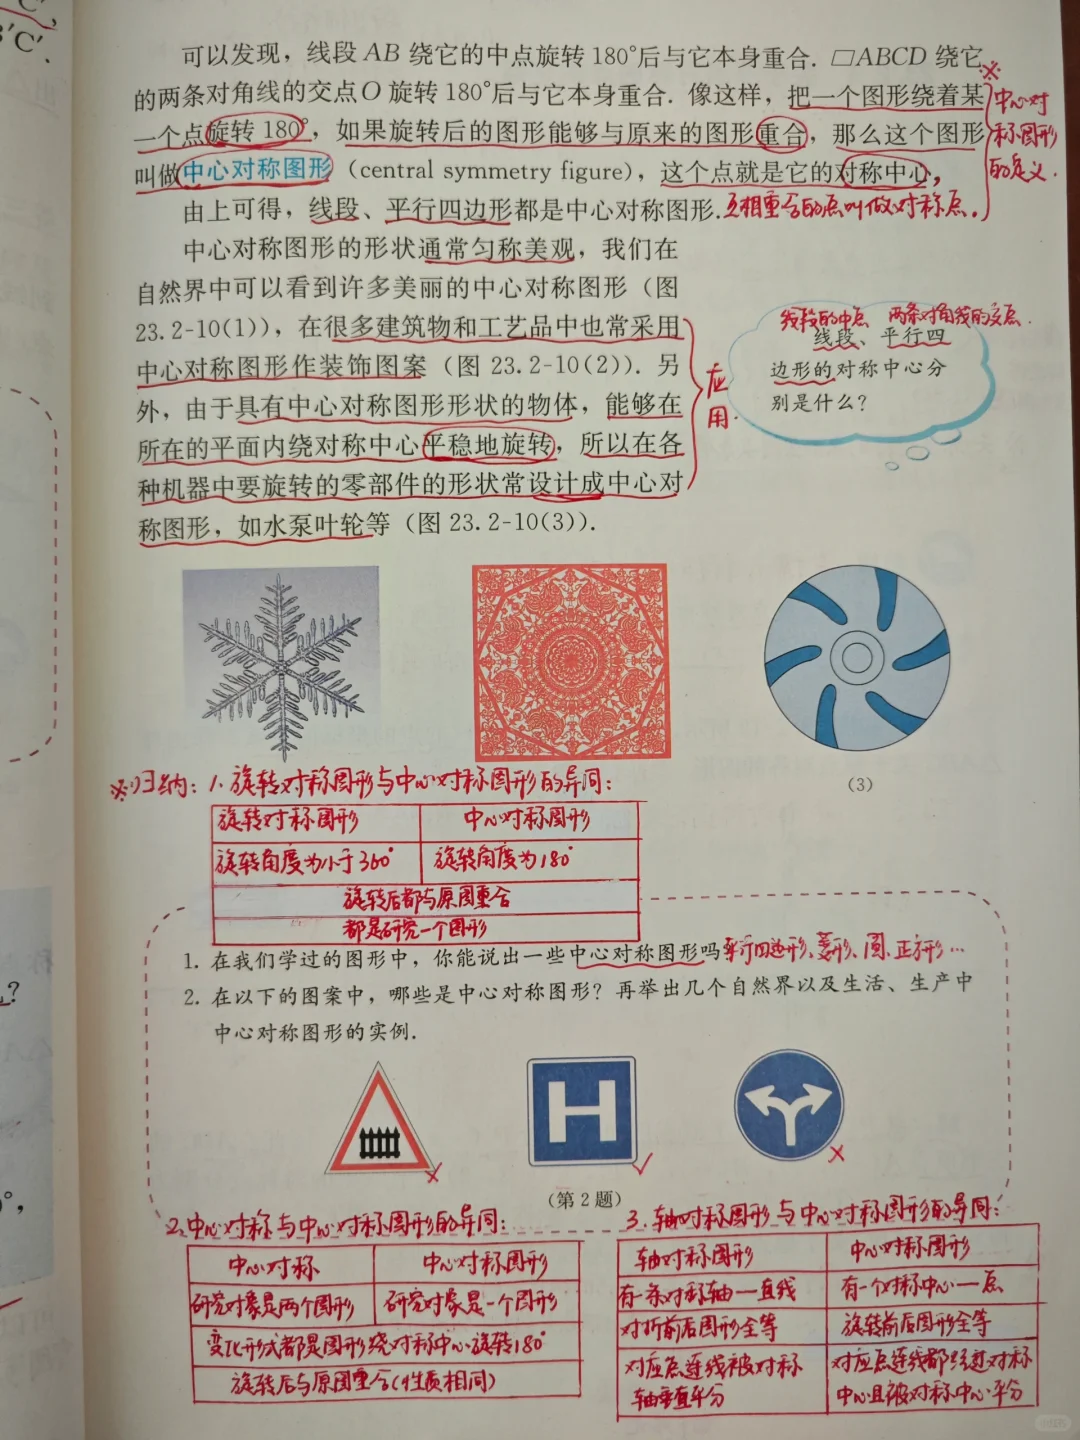 C′,
B′C′.
可以发现，线段 AB 绕它的中点旋转 180°后与它本身重合. ▱ABCD 绕它
的两条对角线的交点 O 旋转 180°后与它本身重合. 像这样，把一个图形绕着某
一个点旋转 180°，如果旋转后的图形能够与原来的图形重合，那么这个图形
叫做中心对称图形（central symmetry figure），这个点就是它的对称中心，
※
中心对
称图形
的定义.
由上可得，线段、平行四边形都是中心对称图形. 互相重合的点叫做对称点.
中心对称图形的形状通常匀称美观，我们在
自然界中可以看到许多美丽的中心对称图形（图
23.2-10(1)），在很多建筑物和工艺品中也常采用
中心对称图形作装饰图案（图 23.2-10(2)）. 另
外，由于具有中心对称图形形状的物体，能够在
所在的平面内绕对称中心平稳地旋转，所以在各
种机器中要旋转的零部件的形状常设计成中心对
称图形，如水泵叶轮等（图 23.2-10(3)）.
应
用.
线段的中点 两条对角线的交点.
线段、平行四
边形的对称中心分
别是什么？
(3)
※归纳：1. 旋转对称图形与中心对称图形的异同：
旋转对称图形 中心对称图形
旋转角度为小于360° 旋转角度为180°
旋转后都与原图重合
都是研究一个图形
1. 在我们学过的图形中，你能说出一些中心对称图形吗 平行四边形、菱形、圆、正方形…
2. 在以下的图案中，哪些是中心对称图形？再举出几个自然界以及生活、生产中
中心对称图形的实例.
H
（第 2 题）
2. 中心对称与中心对称图形的异同：
中心对称 中心对称图形
研究对象是两个图形 研究对象是一个图形
变化形式都是图形绕对称中心旋转180°
旋转后与原图重合(性质相同)
3. 轴对称图形与中心对称图形的异同：
轴对称图形 中心对称图形
有一条对称轴—直线 有一个对称中心—点
对折前后图形全等 旋转前后图形全等
对应点连线被对称 对应点连线都经过对称
轴垂直平分 中心且被对称中心平分